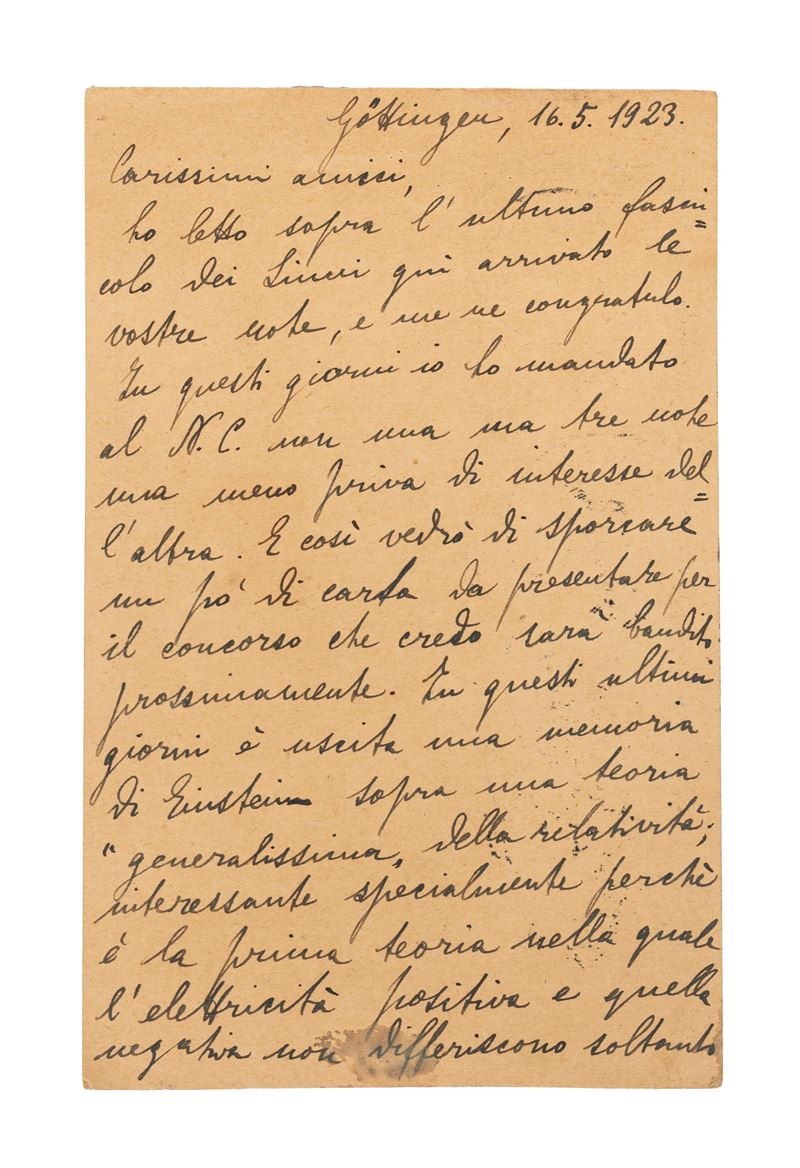 Göttingen, 16.5.1923.
Carissimi amici,
ho letto sopra l'ultimo fasci=
colo dei Lincei qui arrivato le
vostre note, e me ne congratulo.
In questi giorni io ho mandato
al N.C. non una ma tre note
una meno priva di interesse del=
l'altra. E così vedrò di sporcare
un po' di carta da presentare per
il concorso che credo sarà bandito
prossimamente. In questi ultimi
giorni è uscita una memoria
di Einstein sopra una teoria
"generalissima" della relatività;
interessante specialmente perchè
è la prima teoria nella quale
l'elettricità positiva e quella
negativa non differiscono soltanto